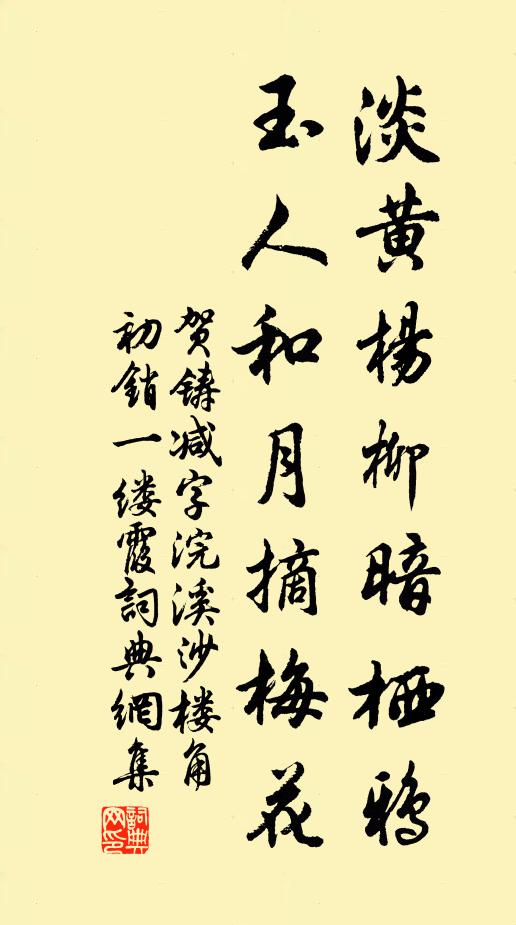 淡黄楊柳暗栖鸦
玉人和月摘梅花
贺鑄减字浣溪沙楼角
初銷一缕霞詞典網集
詞典
网印